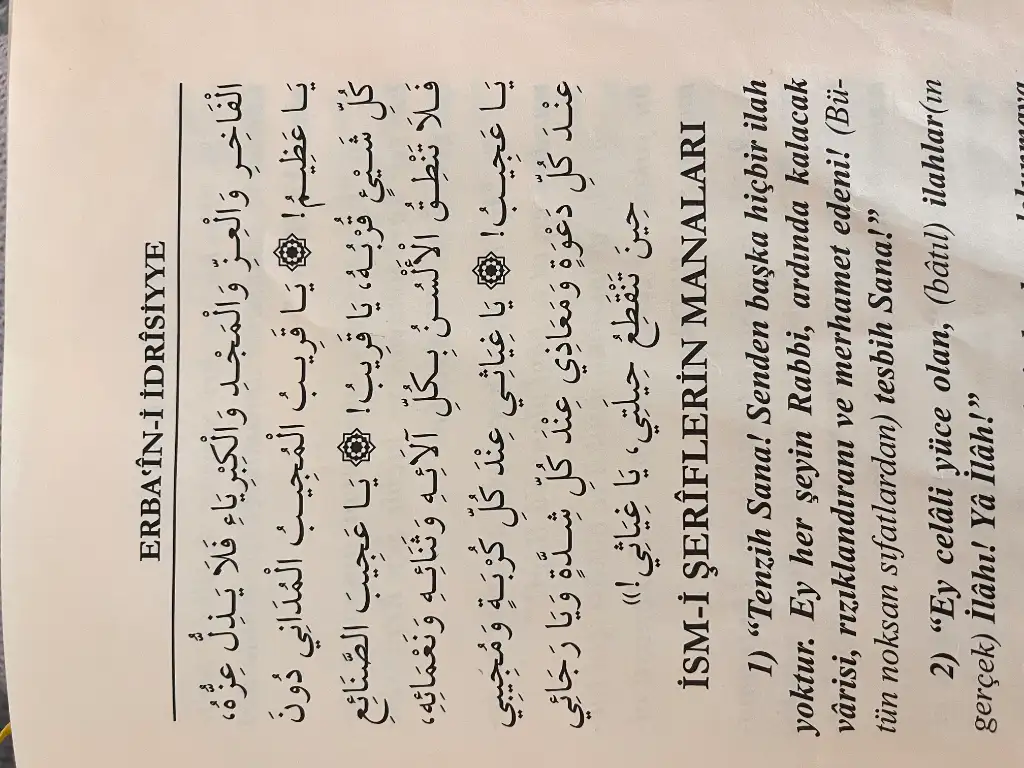 ERBA'ÎN-İ İDRÎSİYYE
الْفَاخِرِ وَالْعِزِّ وَالْمَجْدِ وَالْكِبْرِيَاءِ فَلَا يَذِلُّ عِزُّهُ،
يَا عَظِيمُ! ۞ يَا قَرِيبُ الْمُجِيبُ الْمُدَانِي دُونَ
كُلِّ شَيْئٍ قُرْبُهُ، يَا قَرِيبُ! ۞ يَا عَجِيبَ الصَّنَائِعِ
فَلَا تَنْطِقُ الْأَلْسُنُ بِكُلِّ آلَائِهِ وَثَنَائِهِ وَنَعْمَائِهِ،
يَا عَجِيبُ! ۞ يَا غِيَاثِي عِنْدَ كُلِّ كُرْبَةٍ وَمُجِيبِي
عِنْدَ كُلِّ دَعْوَةٍ وَمَعَاذِي عِنْدَ كُلِّ شِدَّةٍ وَيَا رَجَائِي
حِينَ تَنْقَطِعُ حِيلَتِي، يَا غِيَاثِي!»
İSM-İ ŞERÎFLERİN MANALARI
1) “Tenzih Sana! Senden başka hiçbir ilah
yoktur. Ey her şeyin Rabbi, ardında kalacak
vârisi, rızıklandıranı ve merhamet edeni! (Bü-
tün noksan sıfatlardan) tesbih Sana!”
2) “Ey celâli yüce olan, (bâtıl) ilahlar(ın
gerçek) İlâhı! Yâ İlâh!”